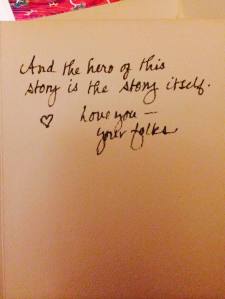 And the hero of this
story is the story itself.
♡ Love you —
your folks